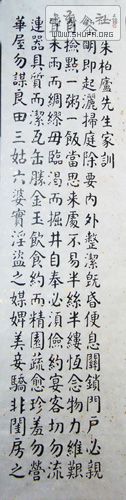 朱柏廬先生家訓
黎明即起灑掃庭除要內外整潔既昏便息關鎖門戶必親
自檢點一粥一飯當思來處不易半絲半縷恒念物力維艱
宜未雨而綢繆毋臨渴而掘井自奉必須儉約宴客切勿流
連器具質而潔瓦缶勝金玉飲食約而精園蔬愈珍羞勿營
華屋勿謀良田三姑六婆實淫盜之媒婢美妾驕非閨房之
WWW.SHUFA.ORG